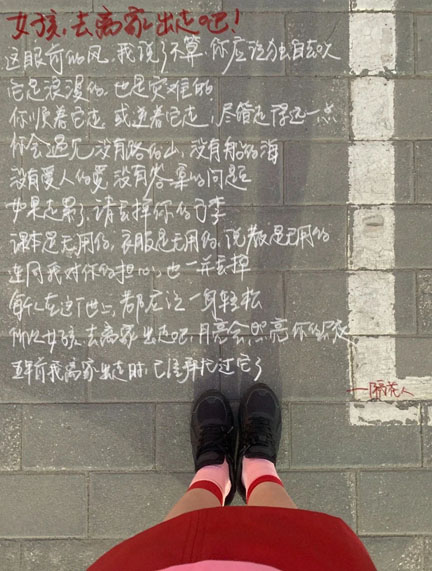 女孩,去离家出走吧!
这眼前的风,我说了不算,你应该独自去吹
它是浪漫的,也是灾难的
你顺着它走 或逆着它走,尽管走得远一点
你会遇见没有路的山,没有船的海
没有爱人的爱,没有答案的问题
如果走累了,请丢掉你的行李
课本是无用的,衣服是无用的,说教是无用的
连同我对你的担心,也一并丢掉
每人在这世上,都应该一身轻松
所以女孩,去离家出走吧,月亮会照亮你的
年前我离家出走时,已经拜托过它了
—隔花人